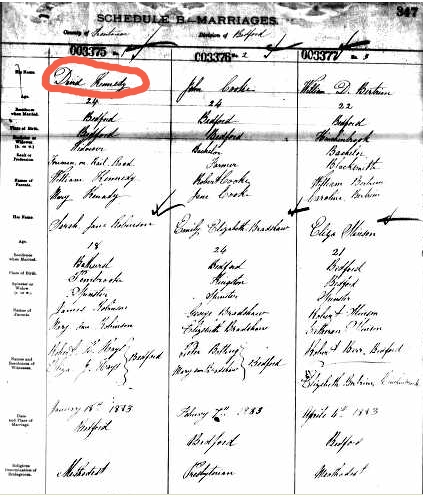 347
SCHEDULE B—MARRIAGES.
County of Frontenac Division of Bedford
003375 No. 1 003376 No. 2 003377 No. 3
His Name David Kennedy John Cooke William D. Bertrim
Age 24 24 22
Residence when Married Bedford Bedford Bedford
Place of Birth Bedford Bedford Hinchinbrook
Bachelor or Widower Widower Bachelor Bachelor
Rank or Profession Foreman on Rail Road Farmer Blacksmith
Names of Parents William Kennedy Robert Cooke William Bertrim
Mary Kennedy Jane Cook Caroline Bertrim
Her Name Sarah Jane Robinson Emily Elizabeth Bradshaw Eliza
Age 18 24 21
Residence when Married Bathurst Bedford Bedford
Place of Birth Pembroke Kingston Bedford
Spinster or Widow Spinster Spinster Spinster
Names of Parents James Robinson George Bradshaw Robert
Mary Ann Robinson Elizabeth Bradshaw
Names and Residences of Witnesses Robert Hays Bedford Peter Bedford Robert Bedford
Eliza J. Hays Mary Ann Bradshaw Elizabeth Bertrim
Date and Place of Marriage January 18th 1883 February 7th 1883 April 4th 1883
Bedford Bedford Bedford
Religious Denomination of Bridegroom Methodist Presbyterian Methodist